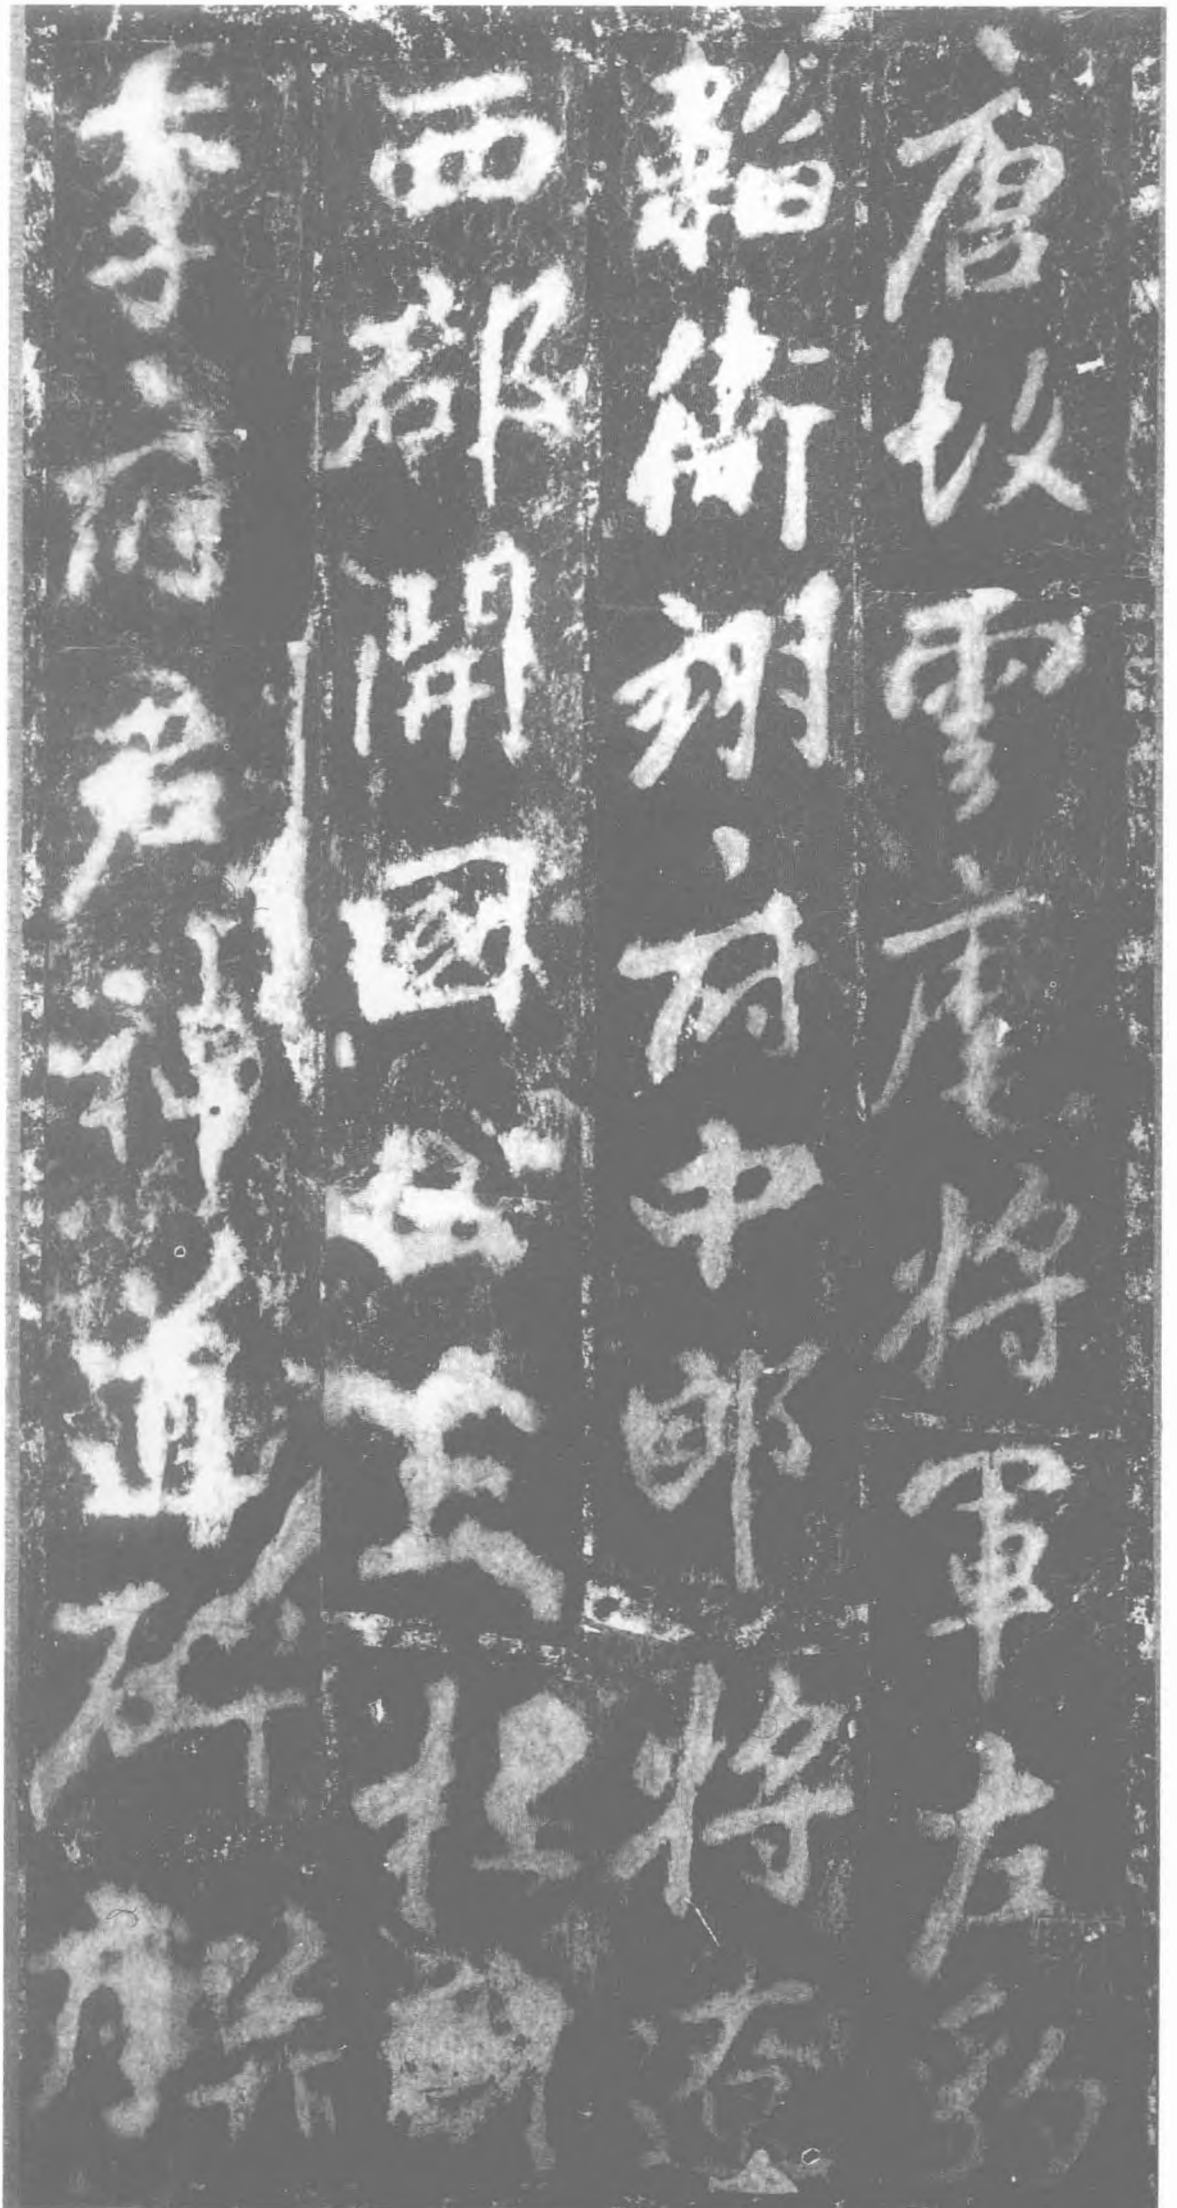 唐故雲麾將軍左豹
韜衛翊府中郎將遼
西郡開國公上柱國
李府君神道碑并序